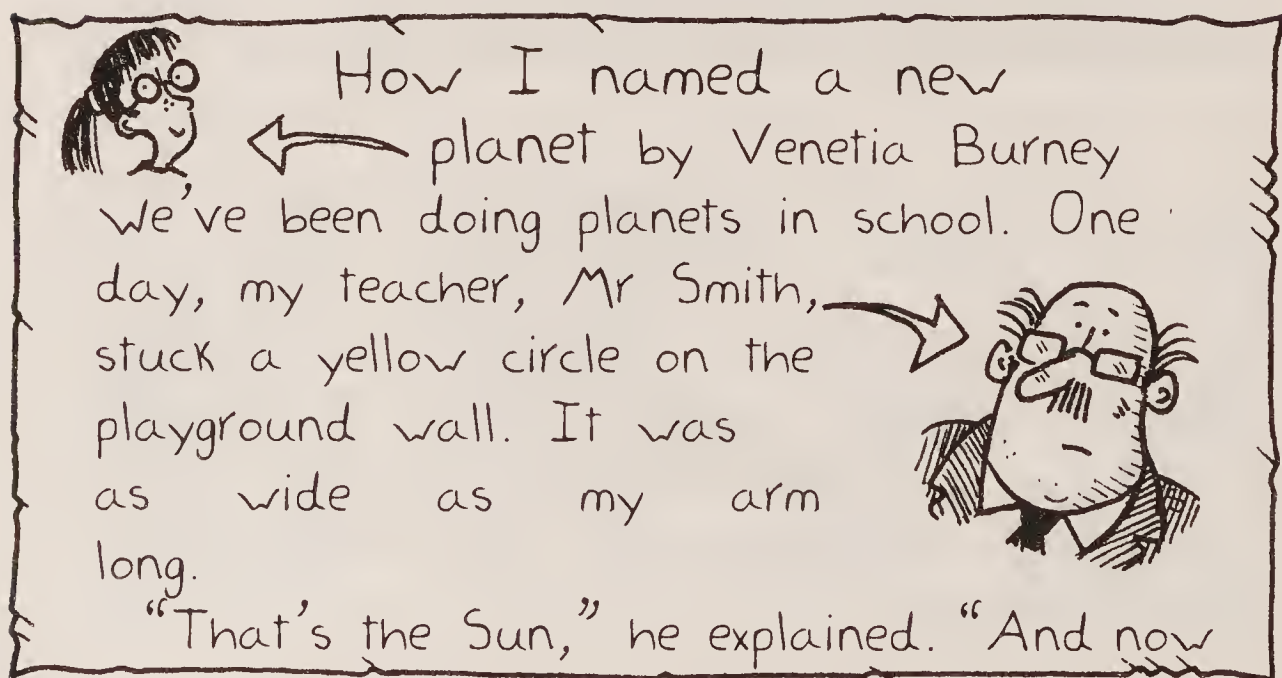 How I named a new
planet by Venetia Burney
We've been doing planets in school. One
day, my teacher, Mr Smith,
stuck a yellow circle on the
playground wall. It was
as wide as my arm
long.
"That's the Sun," he explained. "And now